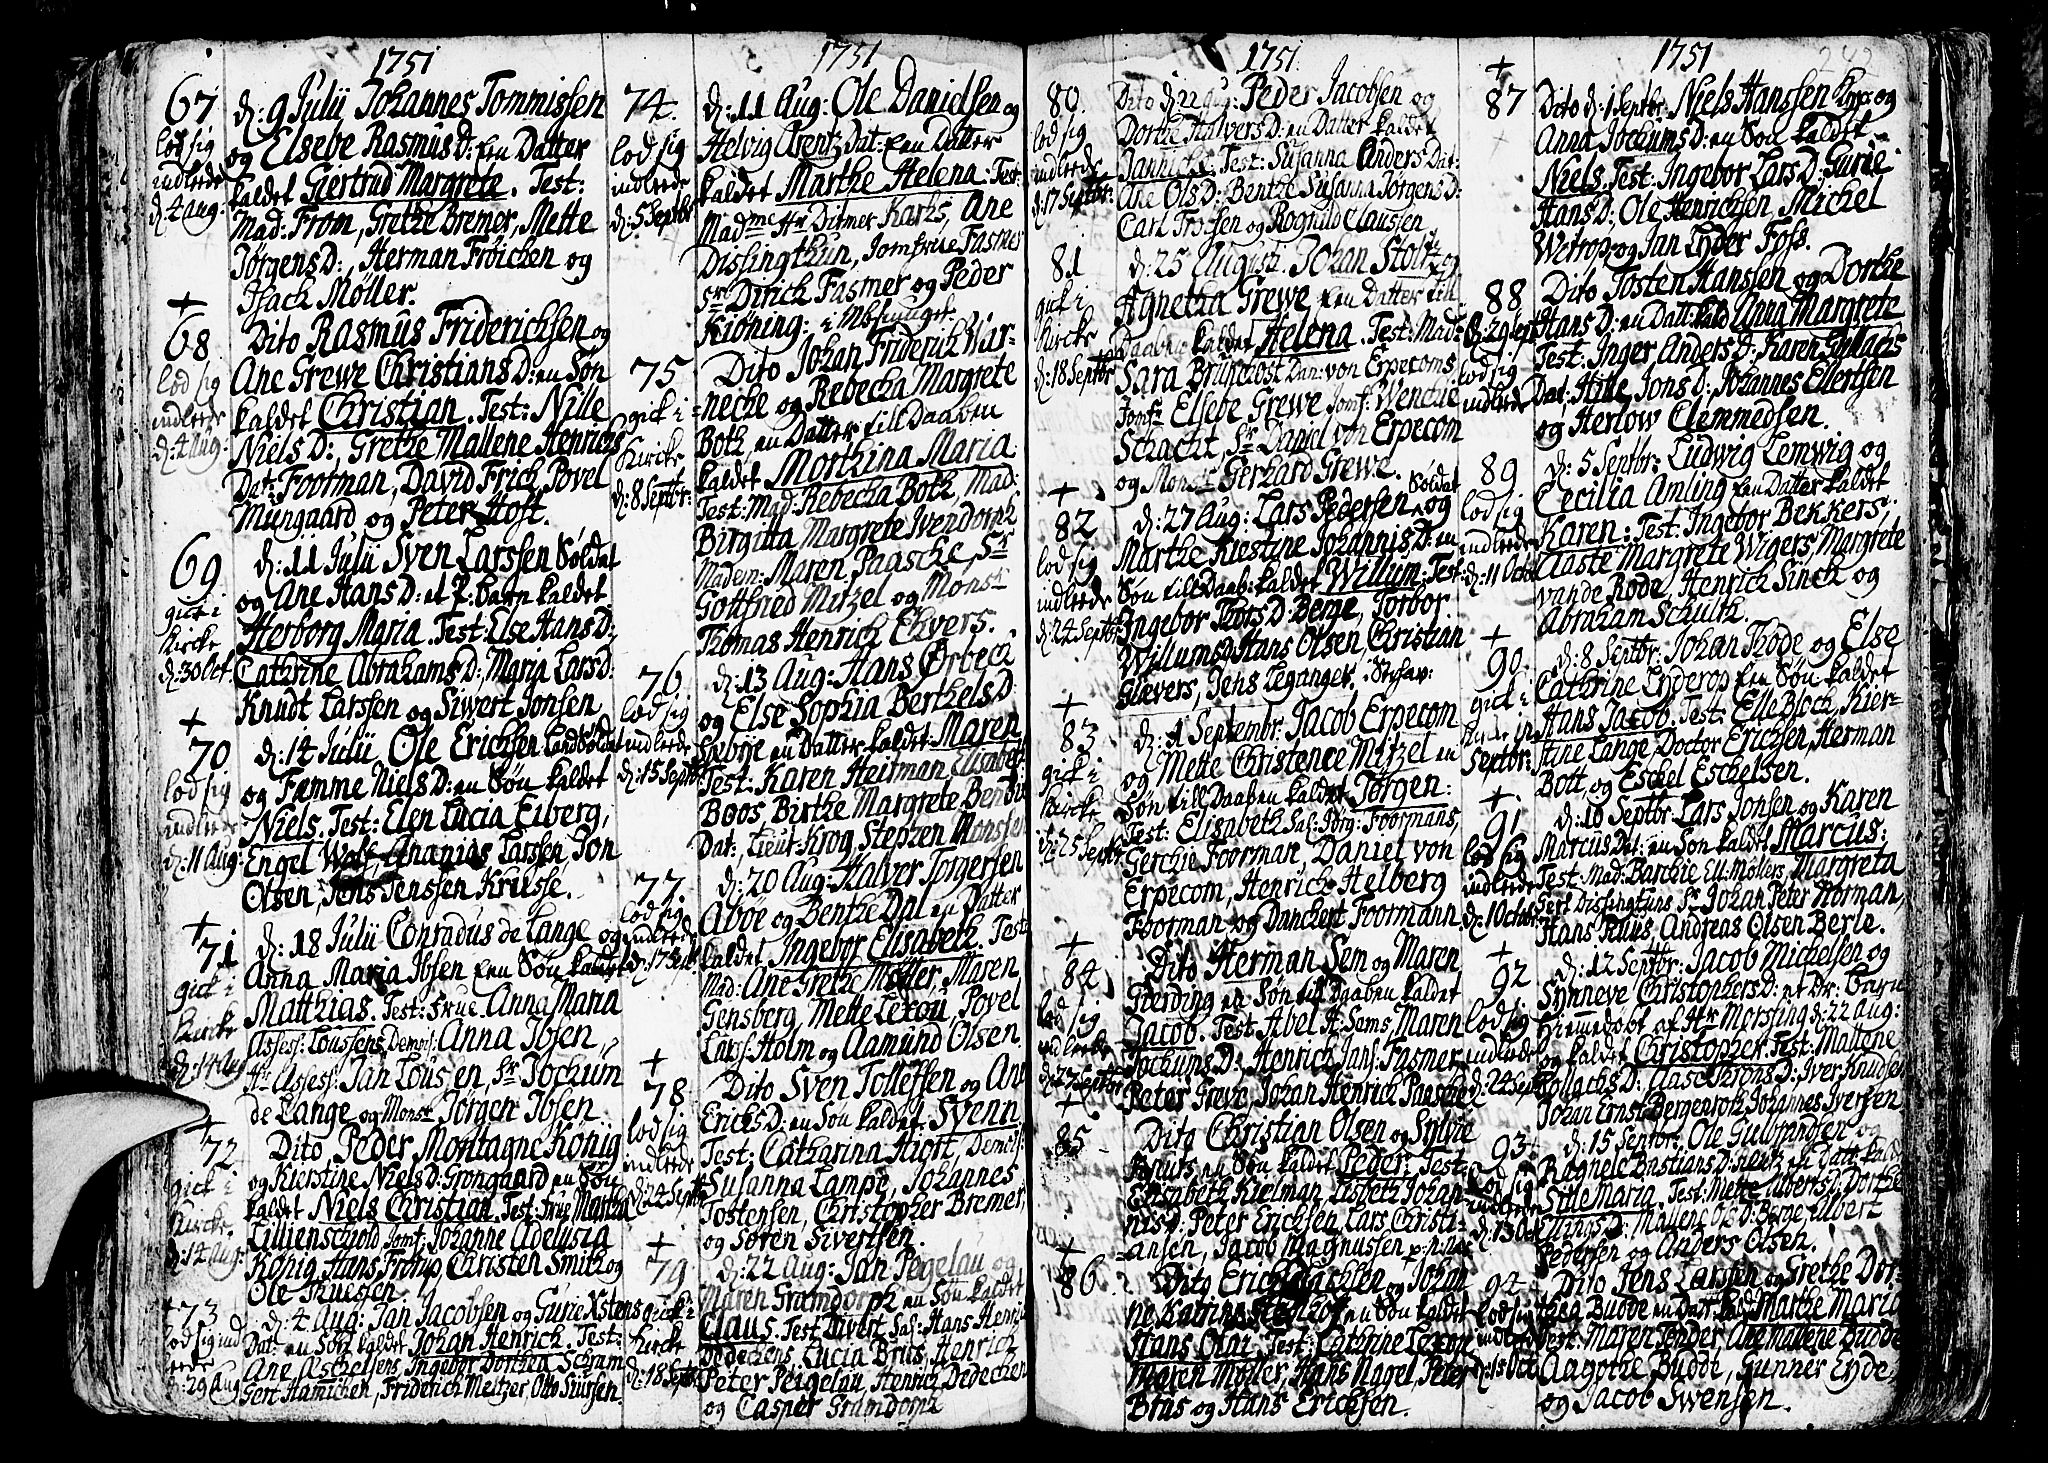 1751
67
lod sig
indlede
d: 4 Aug:
d: 9 Julii Johannes Tommissen
og Elsebe Rasmus D: een Datter
kaldet Giertrud Margrete. Test:
Mad: From, Grethe Bremer, Mette
Jørgens D:, Herman Fröichen og
Isach Møller.
+
68
lod sig
indlede
d: 4 Aug:
Dito Rasmus Friderichsen og
Ane Grewe Christians D: en Søn
kaldet Christian. Test: Nille
Niels D:, Grethe Mallene Henrichs
Dat: Footman, David Frich, Povel
Mungaard og Peter Hoft.
69
gick i
Kircke
d: 30 Oct.
d: 11 Julii Sven Larssen Søldat
og Ane Hans D: et barn kaldet
Herborg Maria. Test: Else Hans D:
Cathrine Abrahams D: Maria Lars D:
Knudt Larssen og Siwert Jonsen
+
70
lod sig
indlede
d: 11 Aug:
d: 14 Julii Ole Erichsen Landsoldat
og Fæmme Niels D: en Søn kaldet
Niels. Test: Elen Lucia Eiberg,
Engel Wolf, Ananias Larssen, Jon
Olsen, Jens Jenssen Krusse.
+
71
gick i
Kircke
d: 14 Aug
d: 18 Julii Conradus de Lange og
Anna Maria Ibsen een Søn kaldet
Matthias. Test: Frue Anna Maria
Assess: Loussens, Demois: Anna Ibsen
Hr Assess: Jan Lousen, Sr Jochum
de Lange og Monsr Jørgen Ibsen
+
72
gick i
Kircke
d: 14 Aug:
Dito Peder Montagne König
og Kierstine Niels D: Grongaard en Søn
kaldet Niels Christian. Test: Frue Martha
Lillienschiold Jomf: Johanne Adelusia
König, Hans Frørup, Christen Smith og
Ole Truesen.
+73
lod sig ind
lede
d: 29 Aug
d: 4 Aug: Jan Jacobsen og Gurie Xstens
Dat: en Søn kaldet Johan Henrich. Test:
Ane Ingebor Dorthea Schram
Gert Hamichen, Friderich Meltzer, Otto Siursen.
1751
74.
lod sig
indlede
d: 5 Septbr
d: 11 Aug: Ole Danielsen og
Helvig Arentz Dat: een Datter
kaldet Marthe Helena: Test:
Madme Hr Ditmer Karhs, Ane
Dissingthun, Jomfrue Fasmer
Sr Dirich Fasmer og Peder
Kiøning: i
75
gick i
Kircke
d: 8 Septbr:
Dito Johan Friderich War-
necke og Rebecka Margrete
Both, en Datter till Daaben
kaldet Morthina Maria
Test: Mad: Rebecha Both, Mad:
Birgitta Margrete Wendorph
Madem: Maren Paasche, Sr
Gottfried Mitzel og Monsr
Thomas Henrich Ehvers.
76
lod sig
indlede
d: 15 Septbr
d: 13 Aug: Hans Ørbeck
og Else Sophia Berthels D:
Lybye en Datter kaldet Maren
Test: Karen Heitman, Elisabeth
Boos, Birthe Margrete Bendix
Dat:, Lieut: Krog, Stephen Monssen
77
lod sig
indlede
d: 17 Sept
d: 20 Aug: Halver Torgersen
Aboe og Benthe Dal en Datter
kaldet Ingebor Elisabeth. Test:
Mad: Ane Grethe Møller, Maren
Gensberg, Mette Lexou, Povel
Larss: Holm og Aamund Olsen
+
78
lod sig
indlede
d: 24 Septbr
Dito Sven Tolleffsen og Ane
Erichs D: en Søn kaldet Svenn
Test: Catharina Hiort, Demois:
Susanna Lampe, Johannes
Tostensen, Christopher Bremer,
og Søren Sivertsen.
+
79
gick i
Kircke
d: 18 Septbr
d: 22 Aug: Jan Pegelau og
Maren Gramdorph en Søn kaldet
Claus. Test: Divert Sal: Hans Henrich
Dedechens, Lucia Brus, Henrich
Peter Peigelau, Henrich Dedechen
og Casper Gramdorph
1751.
80.
lod sig
indlede
d: 17 Septbr:
Dito d: 22 Aug: Peder Jacobsen og
Dorthe Halvers D: en Datter kaldet
Jannicke. Test: Susanna Anders Dat:
Ane Ols D: Benthe Susanna Jørgens D:
Carl Troesen og Rognald Claussen
81
gick i
Kircke
d: 18 Septbr
d: 25 Augusti Johan Stoltz og
Agnetha Grewe een Datter till
Daaben kaldet Helena. Test: Mad:
Sara Dan: von Erpecoms
Jomf: Elsebe Grewe Jomf: Wenche
Schacht, Sr Daniel von Erpecom
og Monsr Gerhard Grewe.
+
82
lod sig
indlede
d: 24 Septbr
d: 27 Aug: Lars Pedersen Soldat og
Marthe Kiestine Johannis D: en
Søn till Daab: kaldet Willum: Test:
Ingebor Thors D: Berge, Torbor
Willums D Hans Olsen, Christian
Glævers, Jens Leganger.
+
83
gick i
Kircke
d: 25 Septbr
d: 1 Septembr: Jacob Erpecom
og Mette Christence Mitzel en
Søn till Daaben kaldet Jørgen:
Test: Elisabeth Sal: Jørg: Foormans,
Gerchie Foorman, Daniel von
Erpecom, Henrich Helberg
Foorman og Danckert Foormann
+
84
lod sig
indlede
d: 27 Septbr
Dito Herman Sem og Maren
Gierding en Søn till Daaben kaldet
Jacob. Test: Abel A: Sems, Maren
Jochums D:, Henrich Jans: Fasmer,
Peter Greve, Johan Henrich Paasche
+
85
Dito Christian Olsen og Sylvie
Knuts en Søn kaldet Peder: Test:
Elisabeth Kielman, Lisbeth Johan
nis D: Peter Erichsen, Lars Christi-
ansen, Jacob Magnussen
+
86
Dito Erich og Johan
ne Katrine en Søn kaldet
Hans Olai: Test: Cathrine Lexou
Maren Møller, Hans Nagel, Peter
Brus og Hans Erichsen.
1751
+
87
Dito d: 1 Septbr: Niels Hanssen og
Anna Jochums D: en Søn kaldet
Niels. Test: Ingebor Lars D: Gurie
Hans D:, Ole Henrichsen, Michel
Wetrop, og Jan Lyder Foss.
88
d: 29 Sept
lod sig
indlede
Dito Tosten Hanssen og Dorthe
Hans D: en Datt: kald Anna Margrete
Test: Inger Anders D: Karen
Dat: Jons D: Johannes Ellertsen
og Herlow Clemmedsen.
89
lod sig
indlede
d: 11 Octob
d: 5 Septbr: Ludwig Lemwig og
Cecilia Amling een Datter kaldet
Karen: Test: Ingebor Bekkers,
Aaste Margrete Wigers, Margrete
vande Rode, Henrich Sinck og
Abraham Schultz.
+
90
gick i
Kircke
Septbr:
d: 8 Septbr: Johan Thode og Else
Cathrine Lyderop een Søn kaldet
Hans Jacob. Test: Elle Bloch, Kier-
stine Lange, Doctor Erichsen, Herman
Bott og Eschel Eschelsen.
+
91
lod sig
indlede
d: 1 Octob
d: 10 Septbr Lars Jonsen og Karen
Marcus Dat: en Søn kaldet Marcus:
Test: Mad: Barchie Ell: Møllers, Margreta
Gert Dissingtuns Sr Johan Peter Korman,
Hans Andreas Olsen Berle.
+
92
lod sig
indlede
d: 24 Sept
d: 12 Septbr: Jacob Michelsen og
Synneve Christophers D: et Dr: barn
Hiemedøbt af Hr Morsing d: 22 Aug:
og kaldet Christopher Test: Mallene
D: Aase D: Iver Knudsen
Johan Ernst Bergenroth Johannes Iversen
93.
lod sig
indlede
d: 13 Oct
d: 15 Septbr: Ole Gulbrandsen og
Ragnele Bastians D: Datt: kald
Sille Maria. Test: Mette Ulberts D: Dorthe
Ellings D: Mallene Ols D: Berge, Ulbert
Pedersen og Anders Olsen.
94
lod sig
indlede
d: 15 Oct
Dito Jens Larssen og Grethe Dor-
thea Budde en Datt: kald Marthe Maria
Test: Maren Tender, Ane Mallene Budde
Aagothe Budde, Gunner Eyde
og Jacob Swensen.